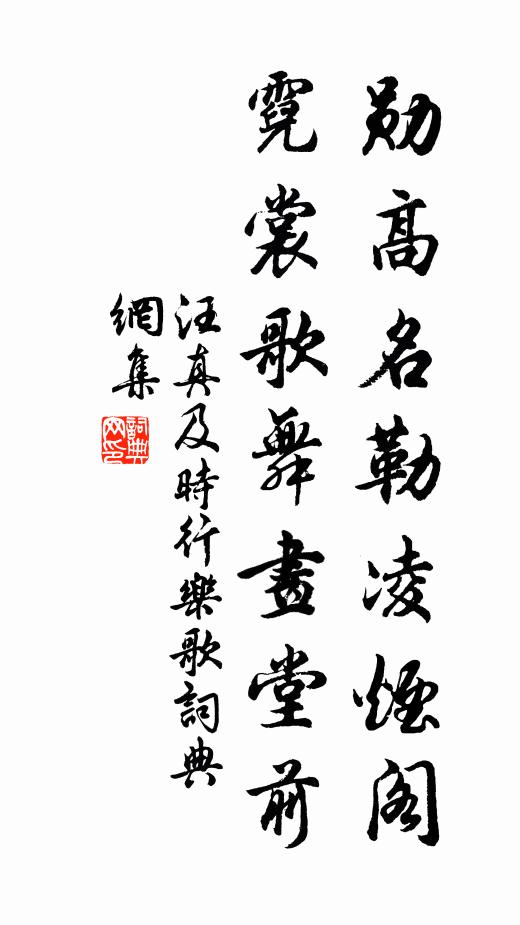 勛高名勒凌煙阁
霓裳歌舞畫堂前
汪真及時行樂歌詞典
網集
詞典網印